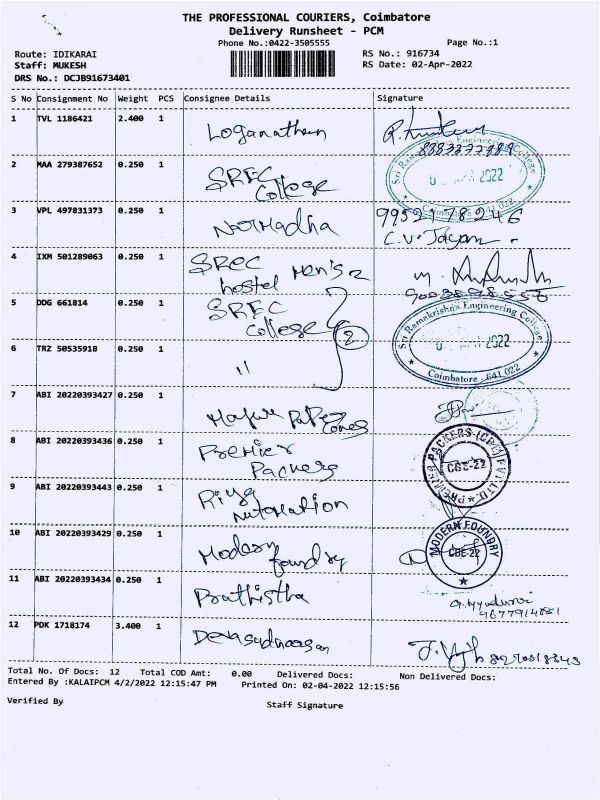 THE PROFESSIONAL COURIERS, Coimbatore
Delivery Runsheet - PCM
Phone No.:0422-3505555
Page No.:1
Route: IDIKARAI
RS No.: 916734
Staff: MUKESH
RS Date: 02-Apr-2022
DRS No.: DCJB91673401
S No Consignment No Weight PCS Consignee Details Signature
1 TVL 1186421 2.400 1 Loganathan
2 MAA 279387652 0.250 1 SREC College
Sri Ramakrishna Engineering College
2022
Coimbatore - 641 022
3 VPL 497831373 0.250 1 Narmadha
C.V. Jayam
4 IXM 501289063 0.250 1 SREC hostel Men's 2
5 DDG 661814 0.250 1 SREC College
2
Sri Ramakrishna Engineering College
2022
Coimbatore - 641 022
6 TRZ 50535918 0.250 1 "
7 ABI 20220393427 0.250 1 Paper Cones
8 ABI 20220393436 0.250 1 Premier Packers
PREMIER PACKERS (CBE) PVT. LTD.
CBE-22
9 ABI 20220393443 0.250 1 Riya Automation
10 ABI 20220393429 0.250 1 Modern foundry
MODERN FOUNDRY
CBE-22
11 ABI 20220393434 0.250 1 Prathistha
9677914881
12 PDK 1718174 3.400 1
Total No. Of Docs: 12 Total COD Amt: 0.00 Delivered Docs: Non Delivered Docs:
Entered By :KALAIPCM 4/2/2022 12:15:47 PM Printed On: 02-04-2022 12:15:56
Verified By
Staff Signature